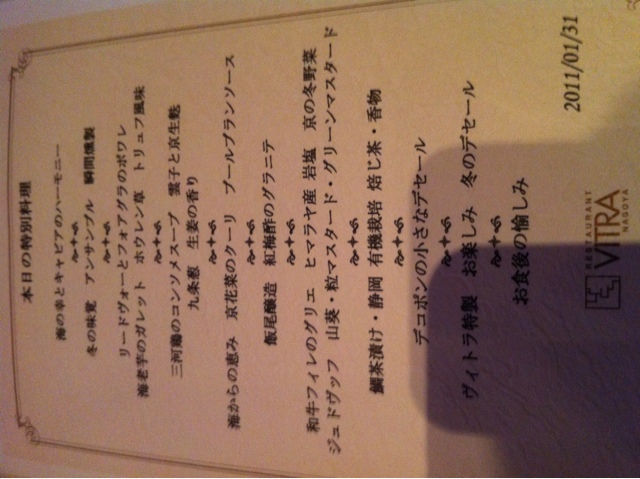 本日の特別料理
海の幸とキャビアのハーモニー
冬の味覚 アンサンブル 瞬間燻製
リードヴォーとフォアグラのポワレ
海老芋のガレット ホウレン草 トリュフ風味
三河鶏のコンソメスープ 雲子と京生麩
九条葱 生姜の香り
海からの恵み 京花菜のクーリ ブールブランソース
飯尾醸造 紅梅酢のグラニテ
和牛フィレのグリエ ヒマラヤ産 岩塩 京の冬野菜
ジュドヴッフ 山葵・粒マスタード・グリーンマスタード
鯛茶漬け・静岡 有機栽培 焙じ茶・香物
デコポンの小さなデセール
ヴィトラ特製 お楽しみ 冬のデセール
お食後の愉しみ
2011/01/31
RESTAURANT
VITRA
NAGOYA